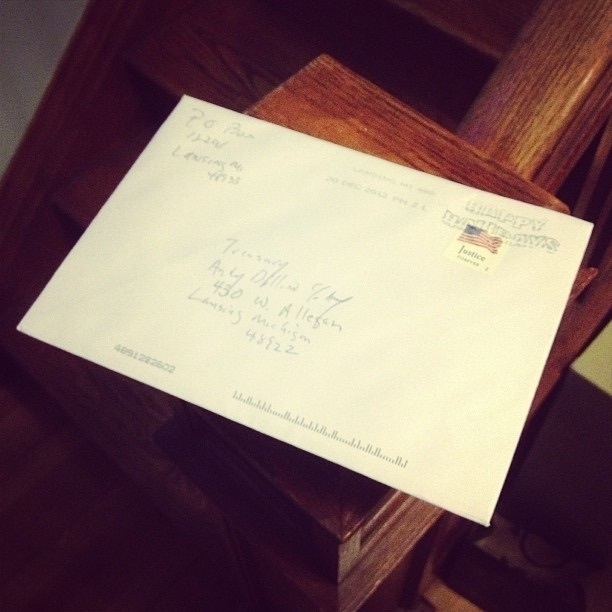 P O Box
Lansing MI
LANSING MI
20 DEC 2012 PM 2 L
HAPPY
HOLIDAYS
Justice
FOREVER
Treasury
Andy Dillon
430 W. Allegan
Lansing Michigan
48922